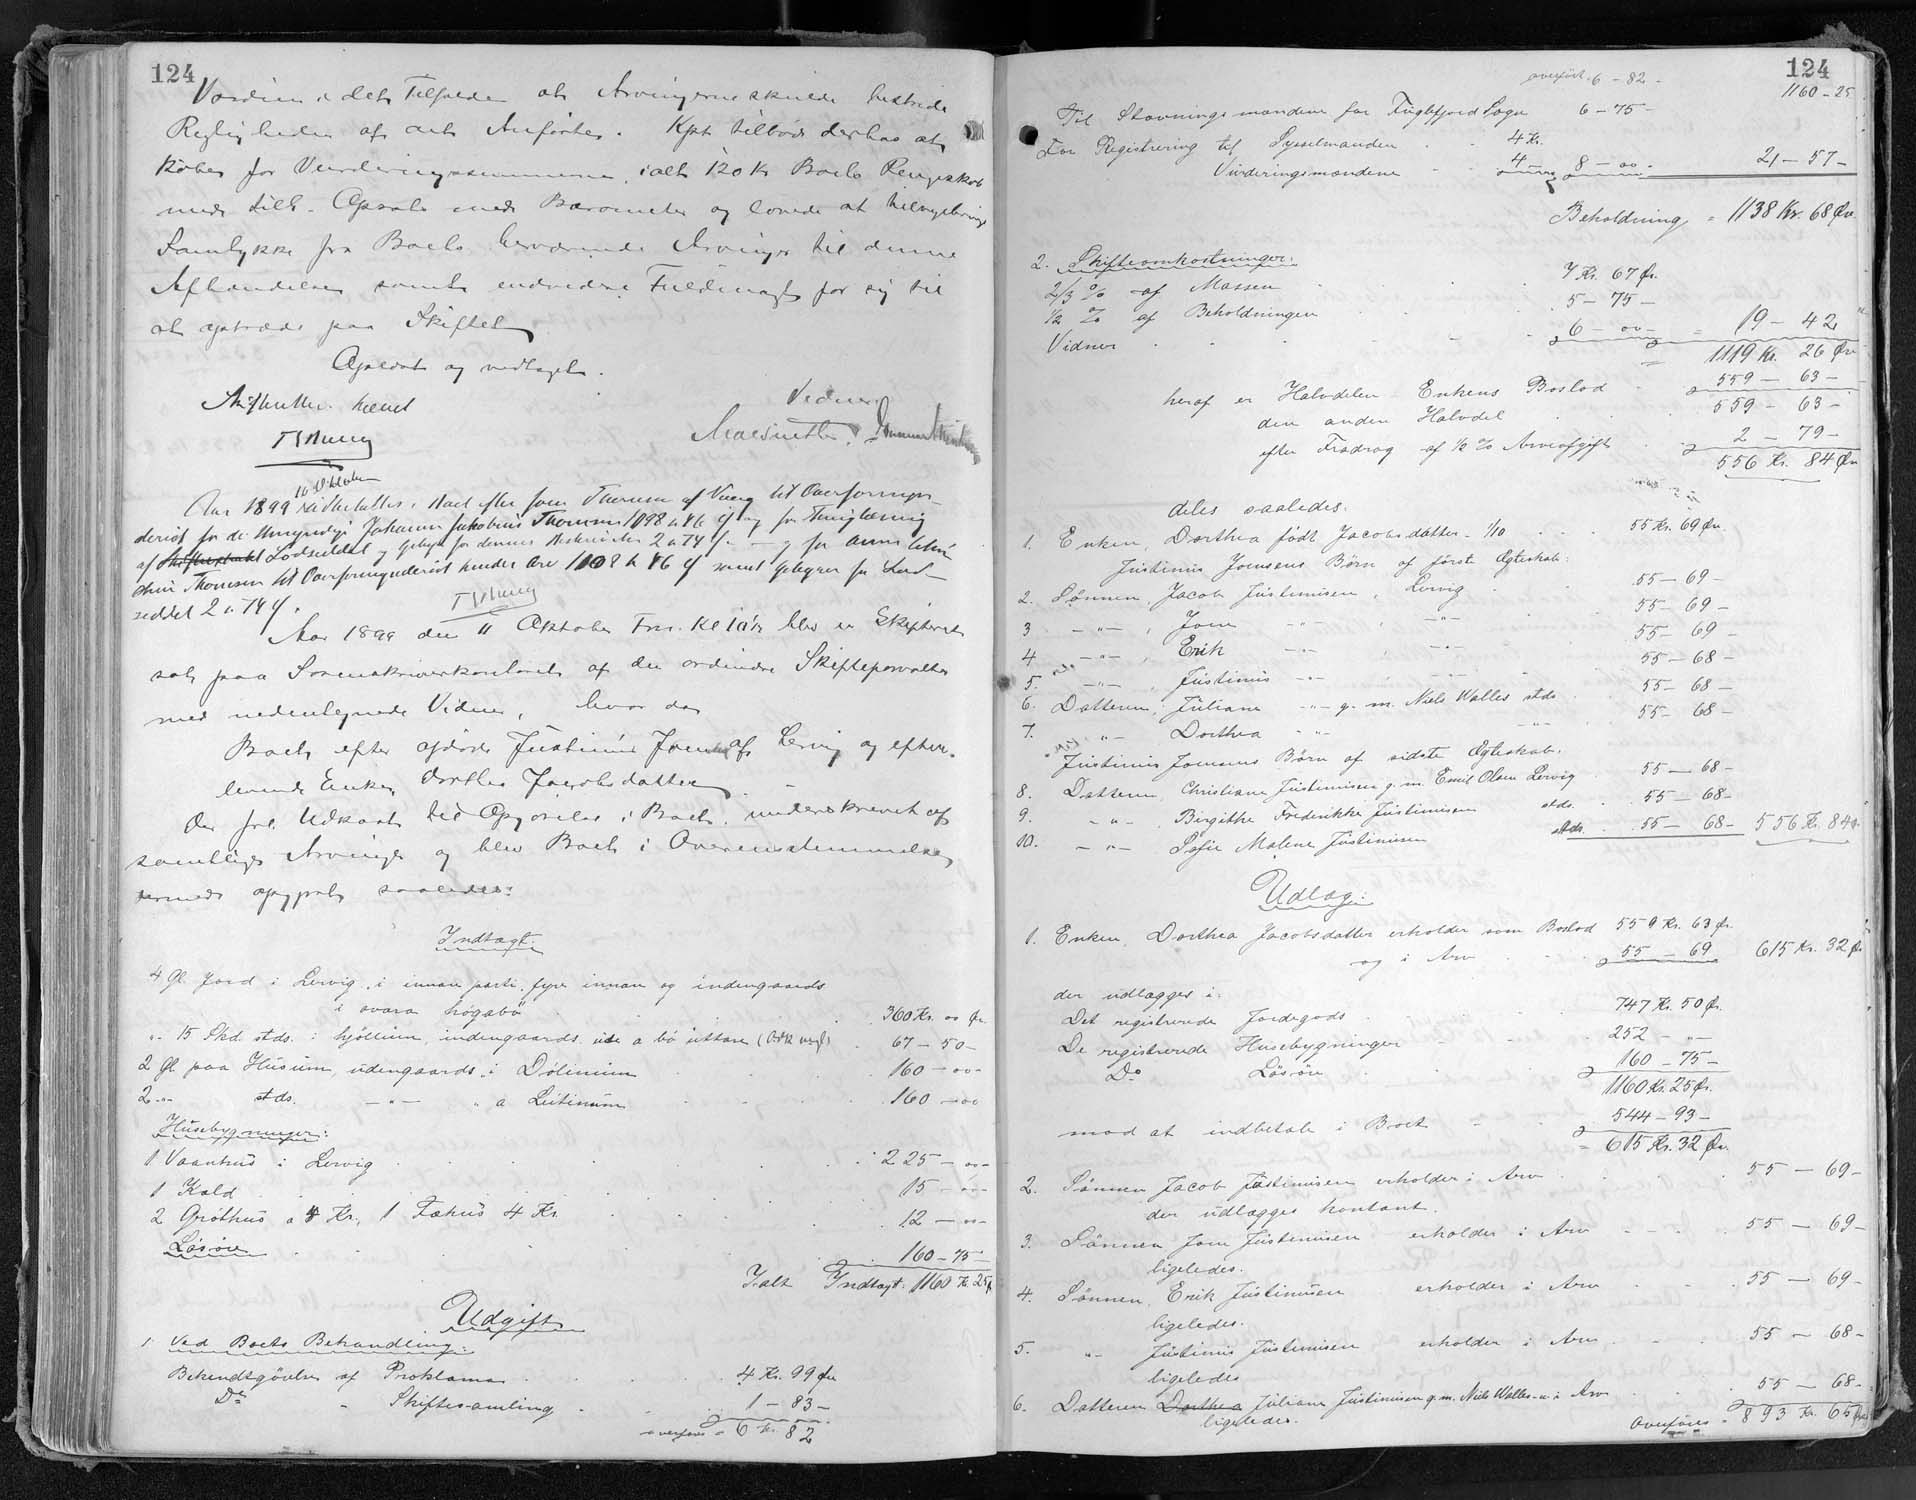 124
Værdien i det Tilfælde at Arvingerne skulde bestride
Rigtigheden af det Anførte. Kpt tilbød derhos at
købe for Vurderingssummerne, ialt 120 Kr Boets Pengeskab
med till. Chatol med Barometer og lovede at tilvejebringe
Samtykke fra Boets herværende Arvinger til denne
Afhændelse samt endvidere Fuldmagt for sig til
at optræde paa Skiftet
Oplæst og vedtaget.
Skifteretten hævet
Vidner:
16 Oktober
Aar 1899 i Boet efter Joen Thomsen af Viderø til Overformyn-
deriet for de Umyndige Johanne Jakobine Thomsen 1098 Kr 46 Ø og for
af Lodseddel og Gebyr for dennes Beskrivelse 2 Kr 74 Ø. — og for Anne
Thomsen til Overformynderiet hendes Arv 1108 Kr 46 Ø samt Gebyrer for Lod-
seddel 2 Kr 74 Ø.
Aar 1899 den 11 Oktober Frm. Kl 10 1/2 blev en Skifteret
sat paa Sorenskriverkontoret af den ordinære Skifteforvalter
med undertegnede Vidner, hvor da
Boet efter afdøde Justinus Joensen af Lervig og efter-
levende Enke Dorthea Jacobsdatter
Der frl. Udkast til Opgørelse i Boet, underskrevet af
samtlige Arvinger og blev Boet i Overensstemmelse
hermed opgjort saaledes:
Indtægt.
4 Gl. Jord i Lervig, i innare parti, fyri innan og indengaards
i ovara høgabø . . . 360 Kr. 00 Ør.
" 15 Skd. stds. i hjøllum, indengaards, úti a bø úttara . 67 – 50 –
2 Gl. paa Húsum, udengaards, i Dølinum . . 160 – 00 –
2 " stds. — " — " a Leitinum . . 160 – 00
Húsebygninger:
1 Vaanhús i Lervig . . . 225 – 00 –
1 Kald . . . 15 – 00 –
2 Gróthús a 4 Kr., 1 Fæhús 4 Kr. . . 12 – 00 –
Løsøre . . . 160 – 75
Ialt Indtægt. 1160 Kr. 25 Ø
Udgift
1 Ved Boets Behandling:
Bekendtgørelse af Proklama . . . 4 Kr. 99 Øre
Do " Skiftesamling . . 1 – 83 –
overføres = 6 Kr. 82
124
overført. 6 – 82 –
1160 – 25
Til Stævningsmændene for Fuglefjord Sogn 6 – 75 –
For Registrering til Sysselmanden . . 4 Kr.
Vurderingsmændene . . 4 – 8 – 00 – 21 – 57 –
Beholdning = 1138 Kr. 68 Øre
2. Skifteomkostninger:
2/3 % af Massen . . . 7 Kr. 67 Ør.
1/2 % af Beholdningen . . . 5 – 75 –
Vidner . . . 6 – 00 – = 19 – 42
= 1119 Kr. 26 Øre
heraf er Halvdelen Enkens Boslod . 559 – 63 –
den anden Halvdel . . . 559 – 63 –
efter Fradrag af 1/2 % Arveafgift . 2 – 79 –
556 Kr. 84 Øre
deles saaledes:
1. Enken, Dorthea født Jacobsdatter – 1/10 . . . 55 Kr. 69 Ør.
Justinus Joensens Børn af første Ægteskab:
2. Sønnen, Jacob Justinusen, Lervig . . 55 – 69 –
3 — " — , Joen — " — , — " — 55 – 69 –
4 — " — , Erik — " — , — " — 55 – 69 –
5. — " — , Justinus — " — , — " — 55 – 68 –
6. Datteren, Juliane — " — g. m. Niels Walles stds . 55 – 68 –
7. " — Dorthea " — — " — 55 – 68 –
Justinus Joensens Børn af sidste Ægteskab:
8. Datteren, Christiane Justinusen g. m. Emil Olsen Lervig . 55 – 68 –
9. — " — , Birgithe Frederikke Justinusen stds . . 55 – 68 –
10. — " — Sofie Malene Justinusen stds. . . 55 – 68 – 556 Kr. 84 Ø.
Udlæg:
1. Enken, Dorthea Jacobsdatter erholder som Boslod 559 Kr. 63 Ør.
og i Arv . . . 55 – 69 615 Kr. 32 Ør
der udlægges i:
Det registrerede Jordegods . . . 747 Kr. 50 Ør.
De registrerede Husebygninger . . . 252 – " –
Do Løsøre . . . 160 – 75 –
1160 Kr. 25 Ør.
mod at indbetale i Boet . . 544 – 93 –
= 615 Kr. 32 Ør.
2. Sønnen Jacob Justinusen erholder i Arv . . . 55 – 69 –
der udlægges kontant.
3. Sønnen Joen Justinusen erholder i Arv . . . 55 – 69 –
ligeledes.
4. Sønnen, Erik Justinusen erholder i Arv . . . 55 – 69 –
ligeledes.
5. " – Justinus Justinusen, erholder i Arv . . . 55 – 68 –
ligeledes
6. Datteren Dorthea Juliane Justinusen g. m. Niels Walles – " – i Arv . . 55 – 68 –
ligeledes.
Overføres = 893 Kr. 65 Øre